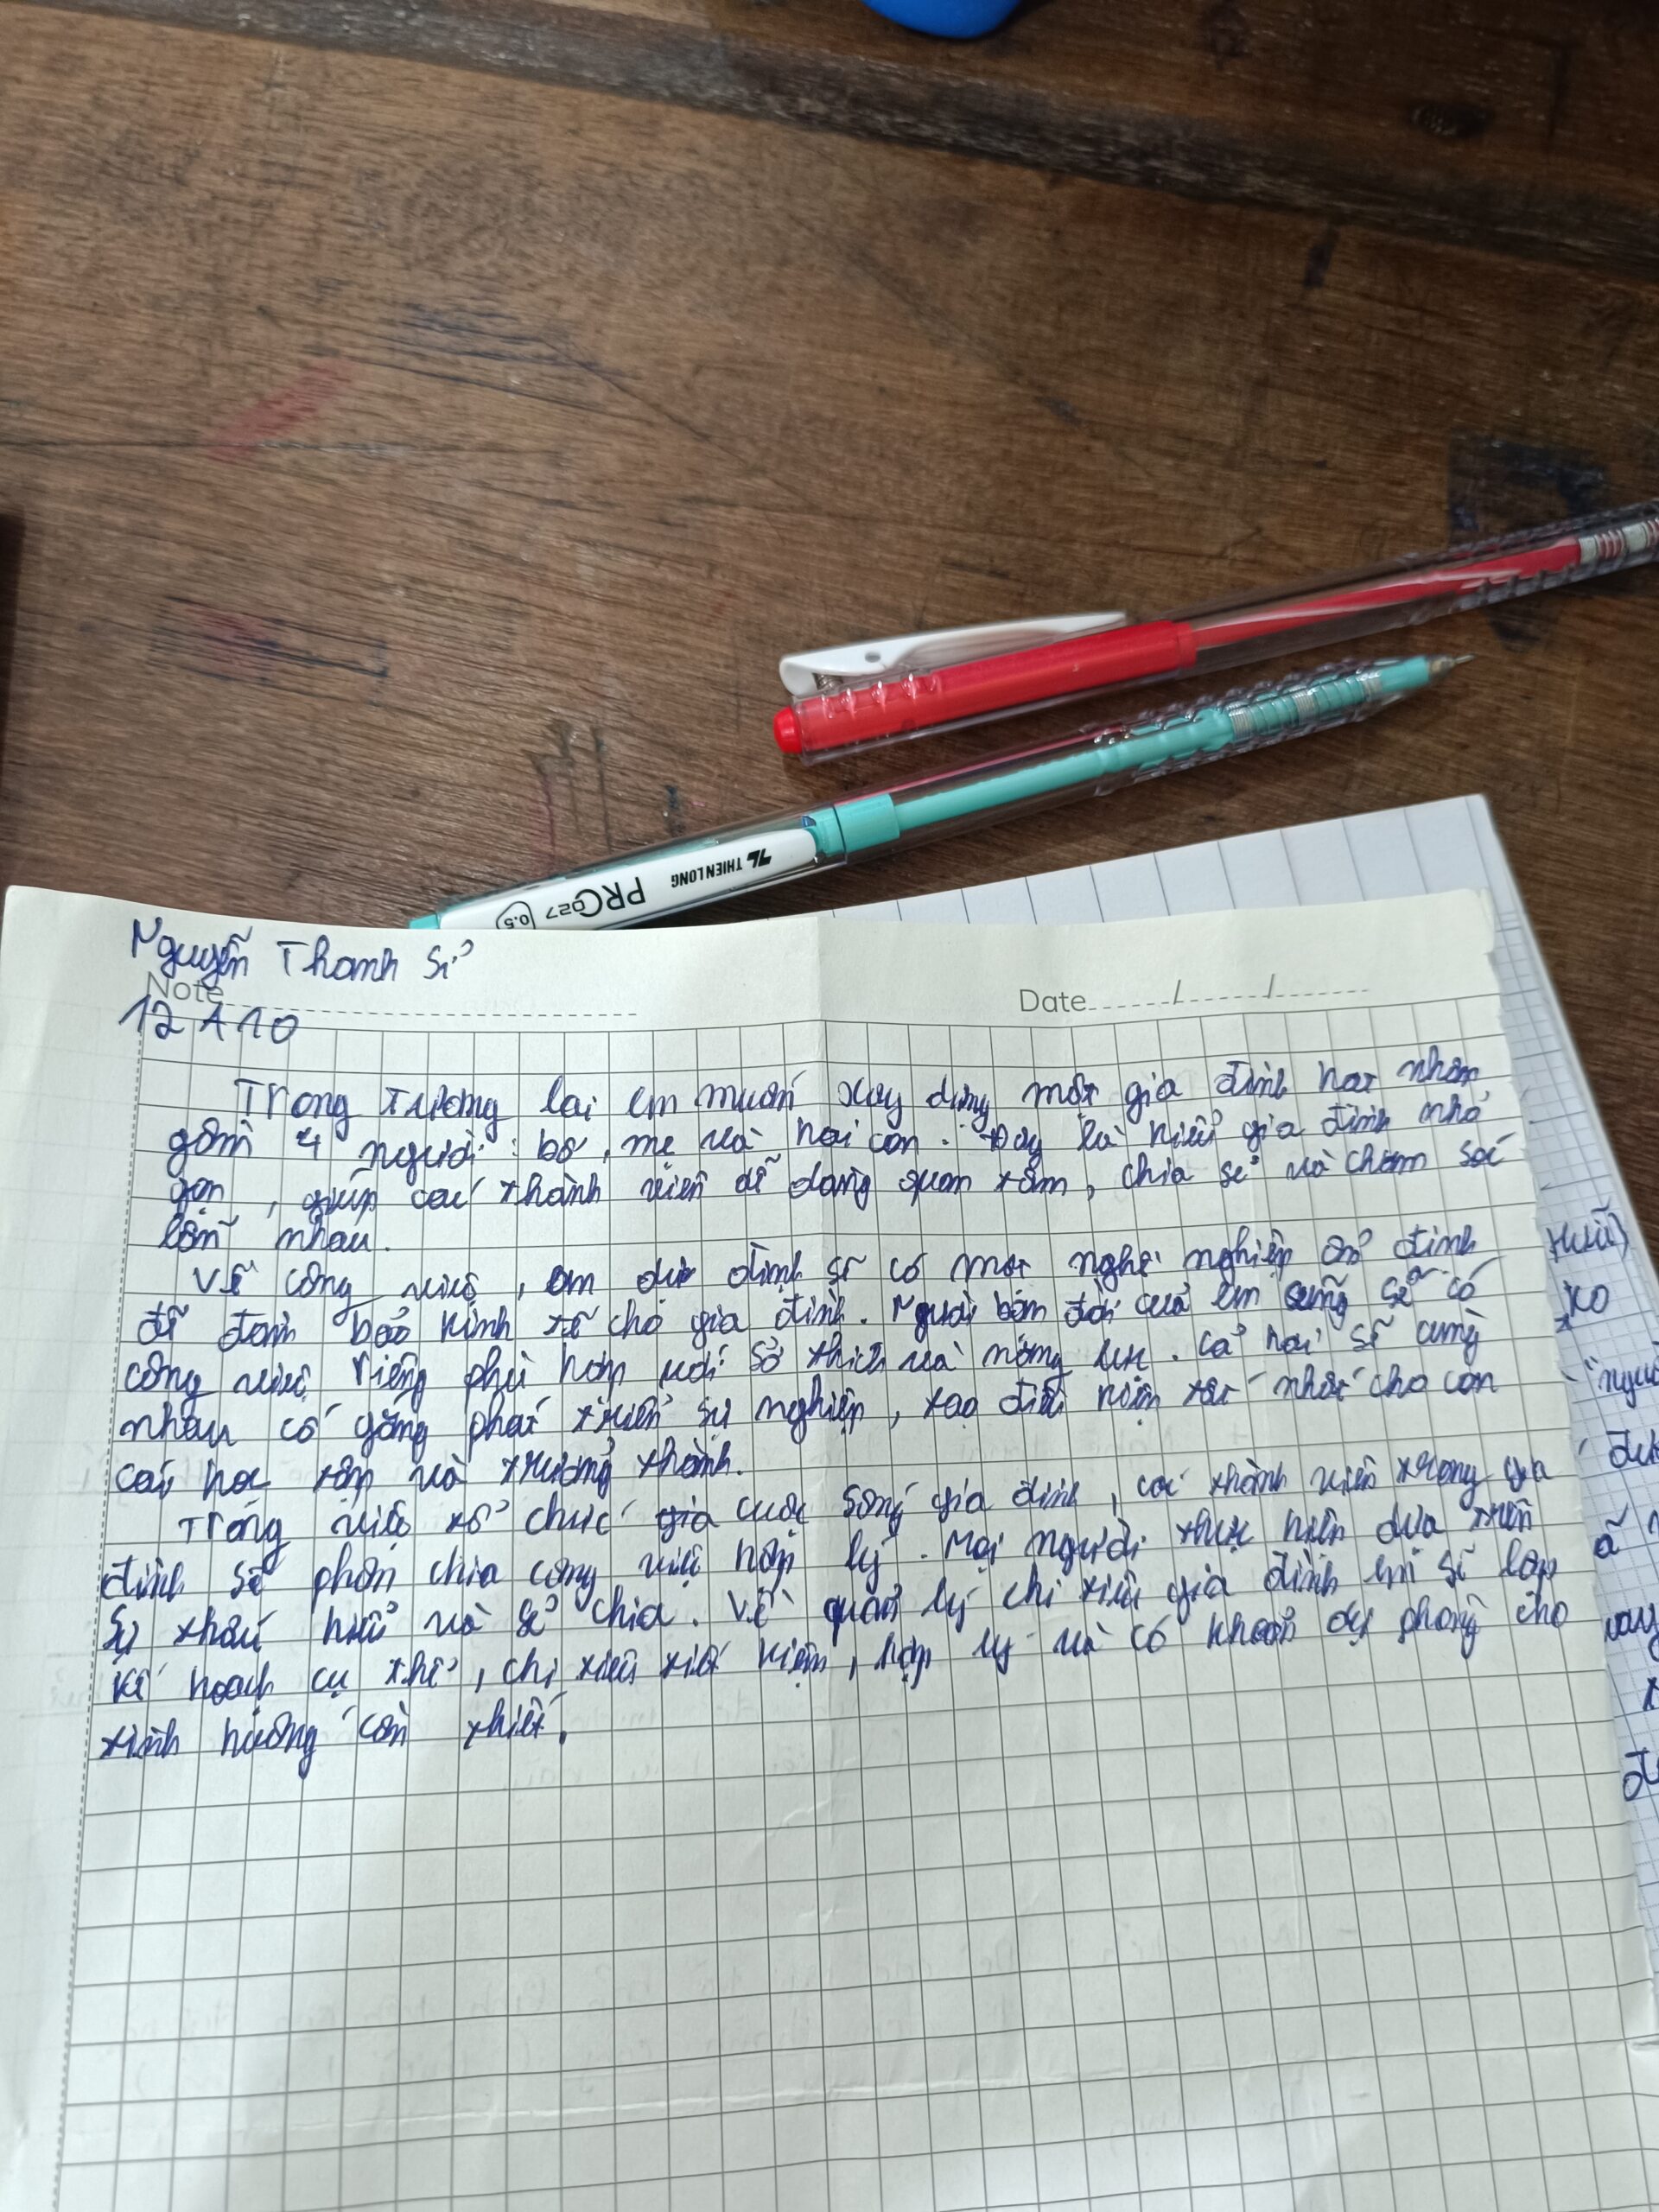 THIEN LONG
PRO
027
0.5
Nguyễn Thanh Sử
Note
Date / /
12 A10
Trong tương lai em muốn xây dựng một gia đình hạt nhân
gồm 4 người: bố, mẹ và hai con. Đây là kiểu gia đình nhỏ
gọn, giúp các thành viên dễ dàng quan tâm, chia sẻ và chăm sóc
lẫn nhau.
Về công việc, em dự định sẽ có một nghề nghiệp ổn định
để đảm bảo kinh tế cho gia đình. Người bạn đời của em cũng sẽ có
công việc riêng phù hợp với sở thích và năng lực. Cả hai sẽ cùng
nhau cố gắng phát triển sự nghiệp, tạo điều kiện tốt nhất cho con
cái học tập và trưởng thành.
Trong việc tổ chức gia cuộc sống gia đình, các thành viên trong gia
đình sẽ phân chia công việc hợp lý. Mọi người thực hiện dựa trên
sự thấu hiểu và sẻ chia. Về quản lý chi tiêu gia đình em sẽ lập
kế hoạch cụ thể, chi tiêu tiết kiệm, hợp lý và có khoản dự phòng cho
tình huống cần thiết.